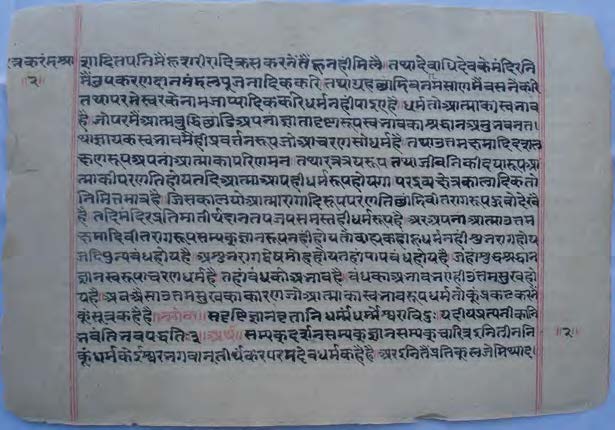 त्रकरंडश्रा ग्रादितपतिमैं हू शरीरादिक्रसकरनेतैं हू नही मिलै तथा देवाधिदेवके मंदिरनि
मैं उपकरणदान मंडलपूजनादिककरि तथा गृह छोमि वनमसाणमैं वसनैकरि
तथा परमेस्वरके नामजाप्यादिककरि धर्म नही पाइए है धर्म तो आत्माका स्वभाव
है जो परमैं आत्मबुद्धि छोडि अपनो ज्ञातादृष्टारूप स्वभावका श्रद्धान अनुभवन त
था ज्ञायकस्वभावमैंही प्रवर्त्तनरूप जो आचरण सो धर्म है तथा उत्तमक्षमादि दशल
क्षणरूप अपनो आत्माका परिणमन तथा रत्नत्रयरूप तथा जीवनिकी दयारूप आ
त्माकी परणति होय तदि आत्मा आपही धर्मरूप होयगा परद्रव्य क्षेत्र कालादिक तो
निमित्तमात्र है जिसकाल यो आत्मा रागादिरूप परणति छोमि वीतरागरूप हुवो देखै
है तदि मंदिर प्रतिमा तीर्थ दान तप जप समस्तही धर्मरूप है अर अपनो आत्मा उत्तम
क्षमादि वीतरागरूप सम्यक्ज्ञानरूप नही होय तो वाह्य कहा हू धर्म नही शुभराग होय
जदि पुण्यबंध होय है अशुभराग द्वेष मोह होय तहां पापबंध होय है जहां शुद्ध श्रद्धान
ज्ञान स्वरूपाचरण धर्म है तहां बंधको अभाव है बंधका अभाव भएही उत्तम सुख हो
य है अब ऐसा उत्तम सुखका कारण जो आत्माका स्वभावरूप धर्म ताकूं प्रकट करनें
कूं सूत्र कहै है श्लोक सद्दृष्टिज्ञानवृत्तानि धर्म्मं धर्म्मेश्वरा विदुः यदीयप्रत्यनीकानि
भवंति भवपद्धतिः ३ अर्थ सम्यक्दर्शन सम्यक्ज्ञान सम्यक्चारित्र इनि तीननि
कूं धर्मके ईश्वर भगवान् तीर्थंकर परमदेव धर्म कहै है अर इनितैं प्रतिकूल जे मिथ्याद
२
२